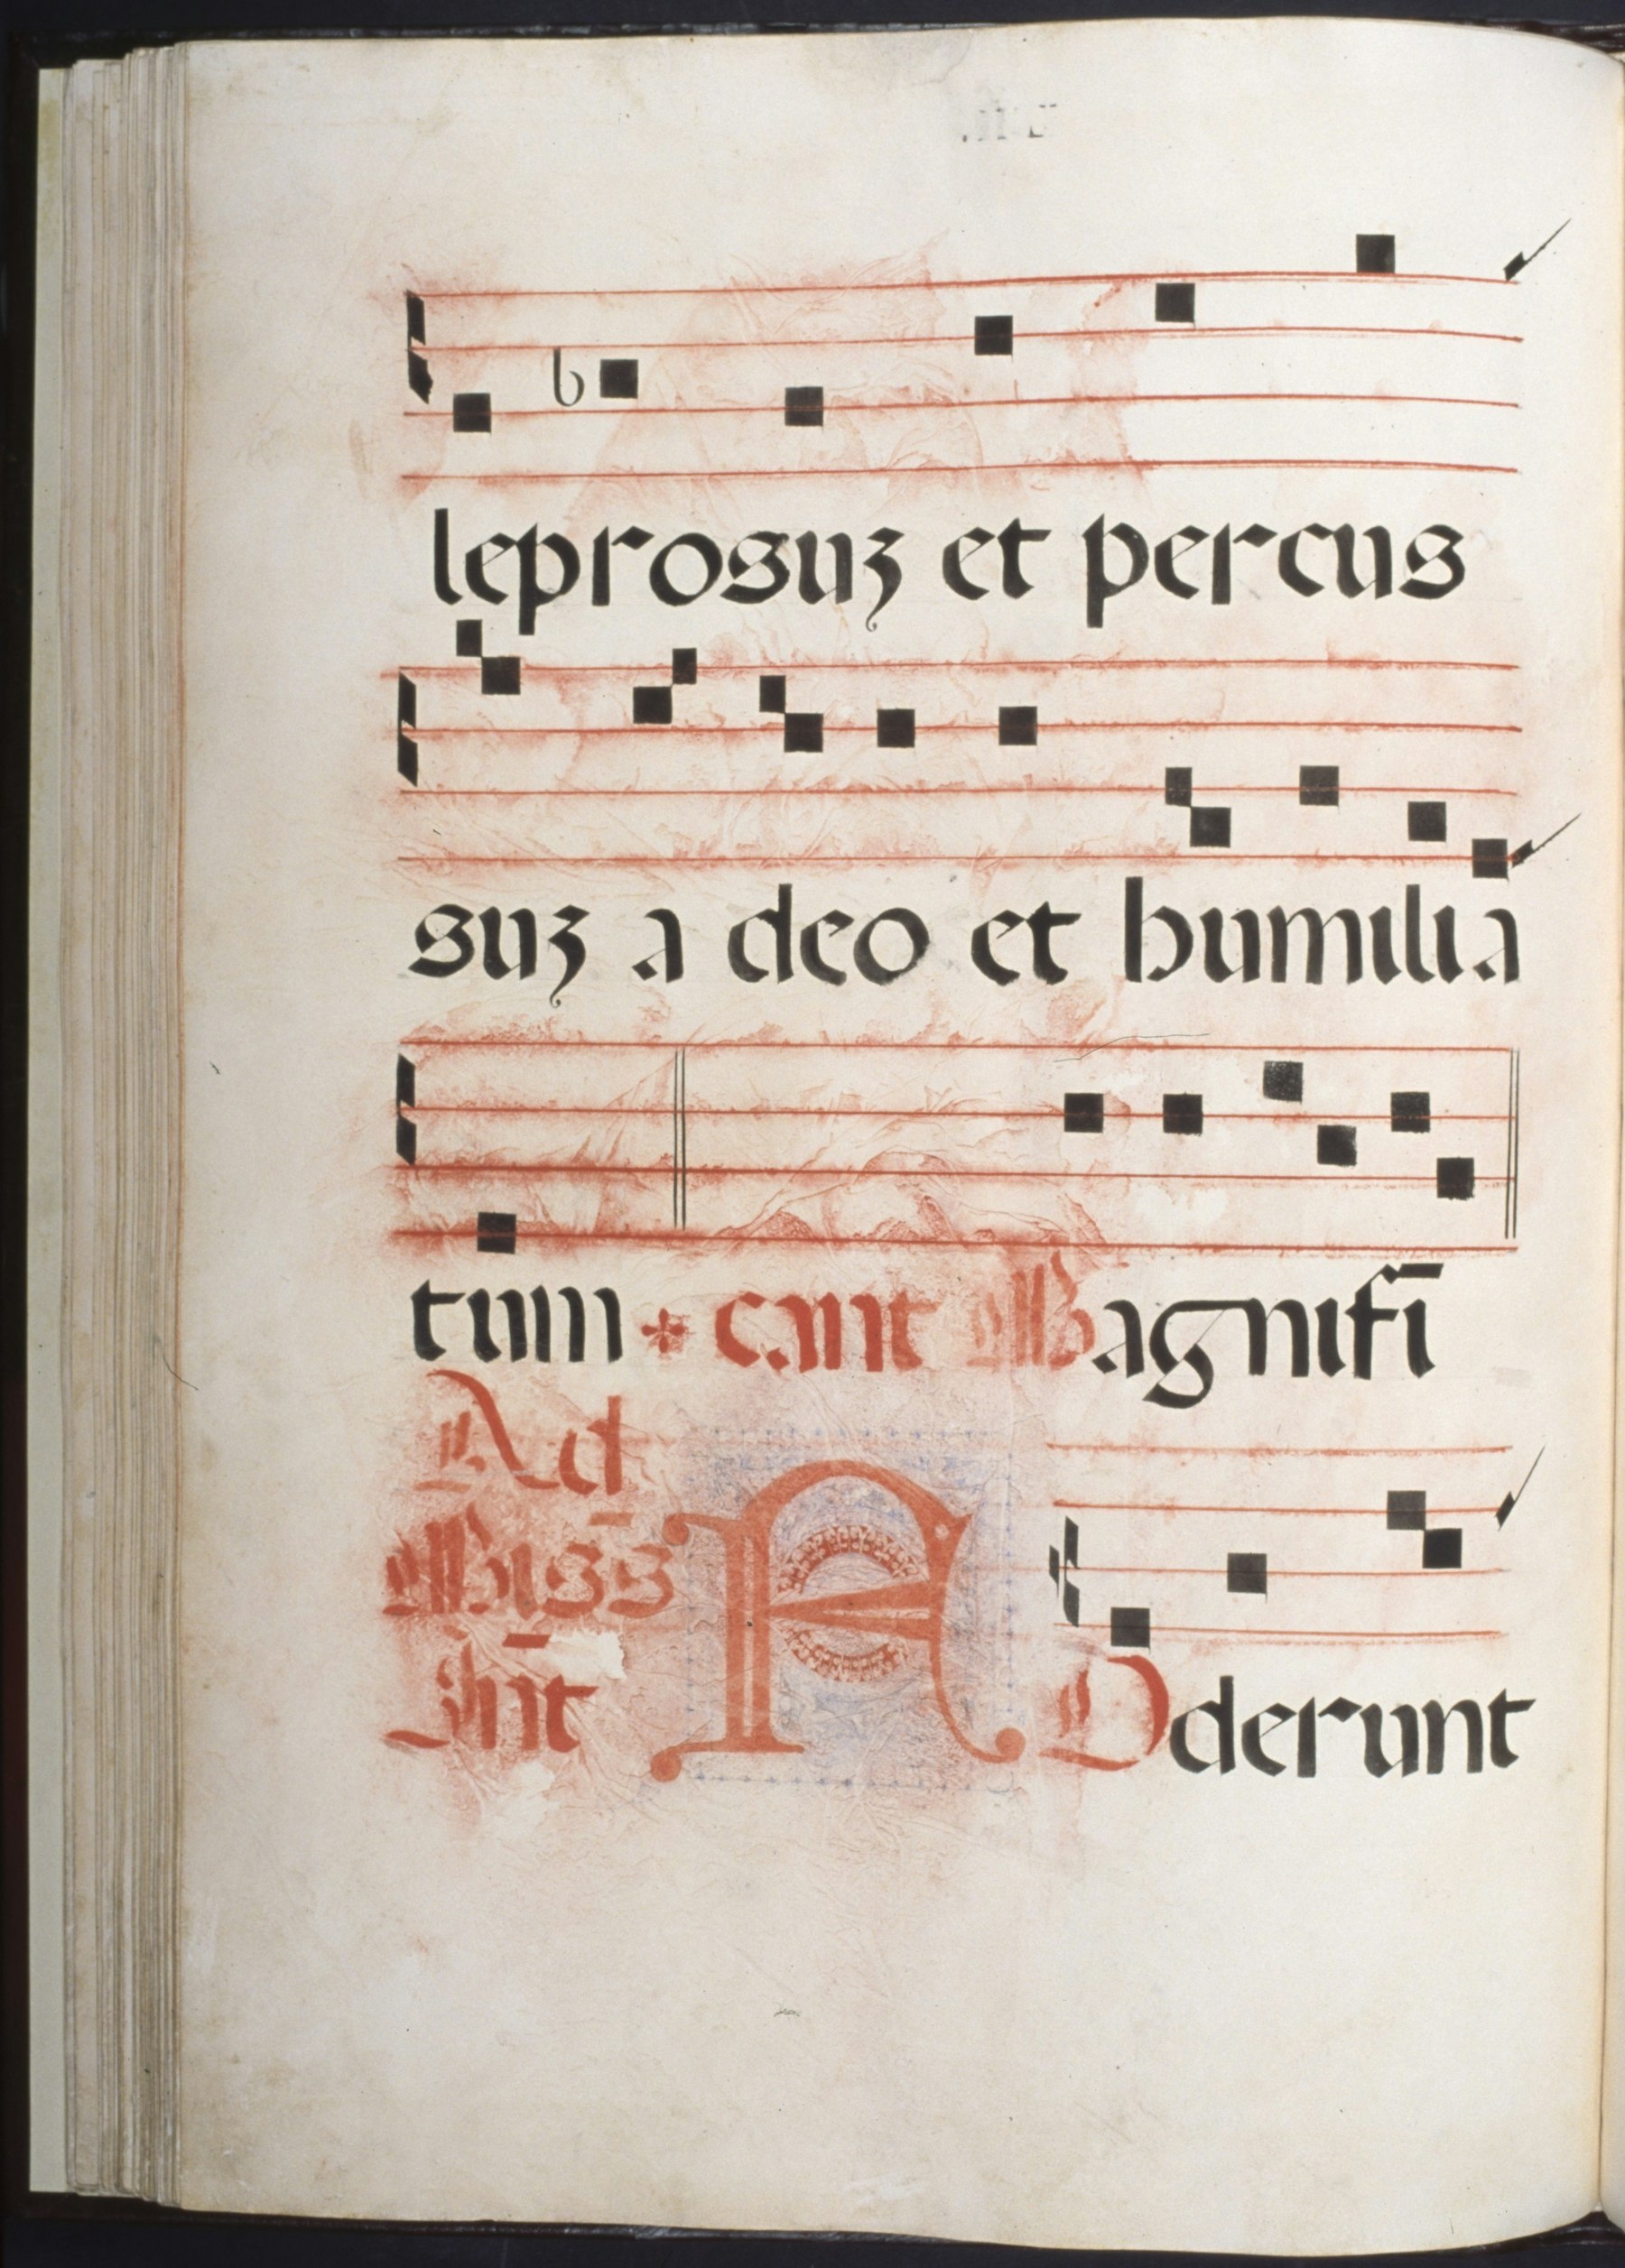 leprosuʒ et percus
suʒ a deo et humilia
tum * cant Magnifi̅
Ad
Miss
In̅t
A Dderunt